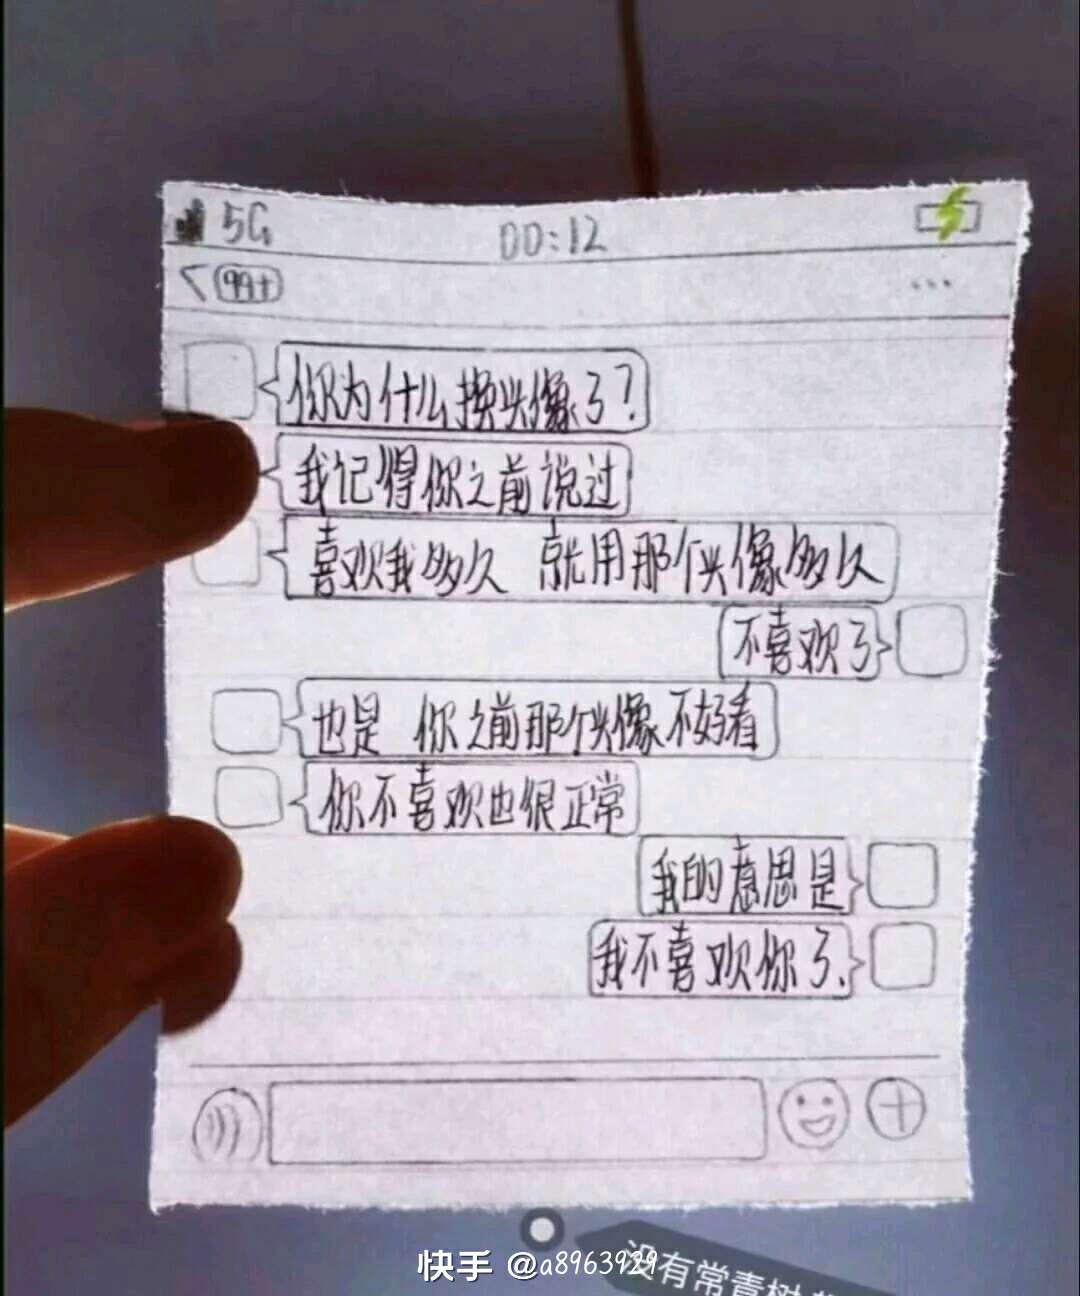 5G 00:12
99+ ...
你为什么换头像了?
我记得你之前说过
喜欢我多久 就用那个头像多久
不喜欢了
也是 你之前那个头像不好看
你不喜欢也很正常
我的意思是
我不喜欢你了.
没有常青树
快手 @a8963929